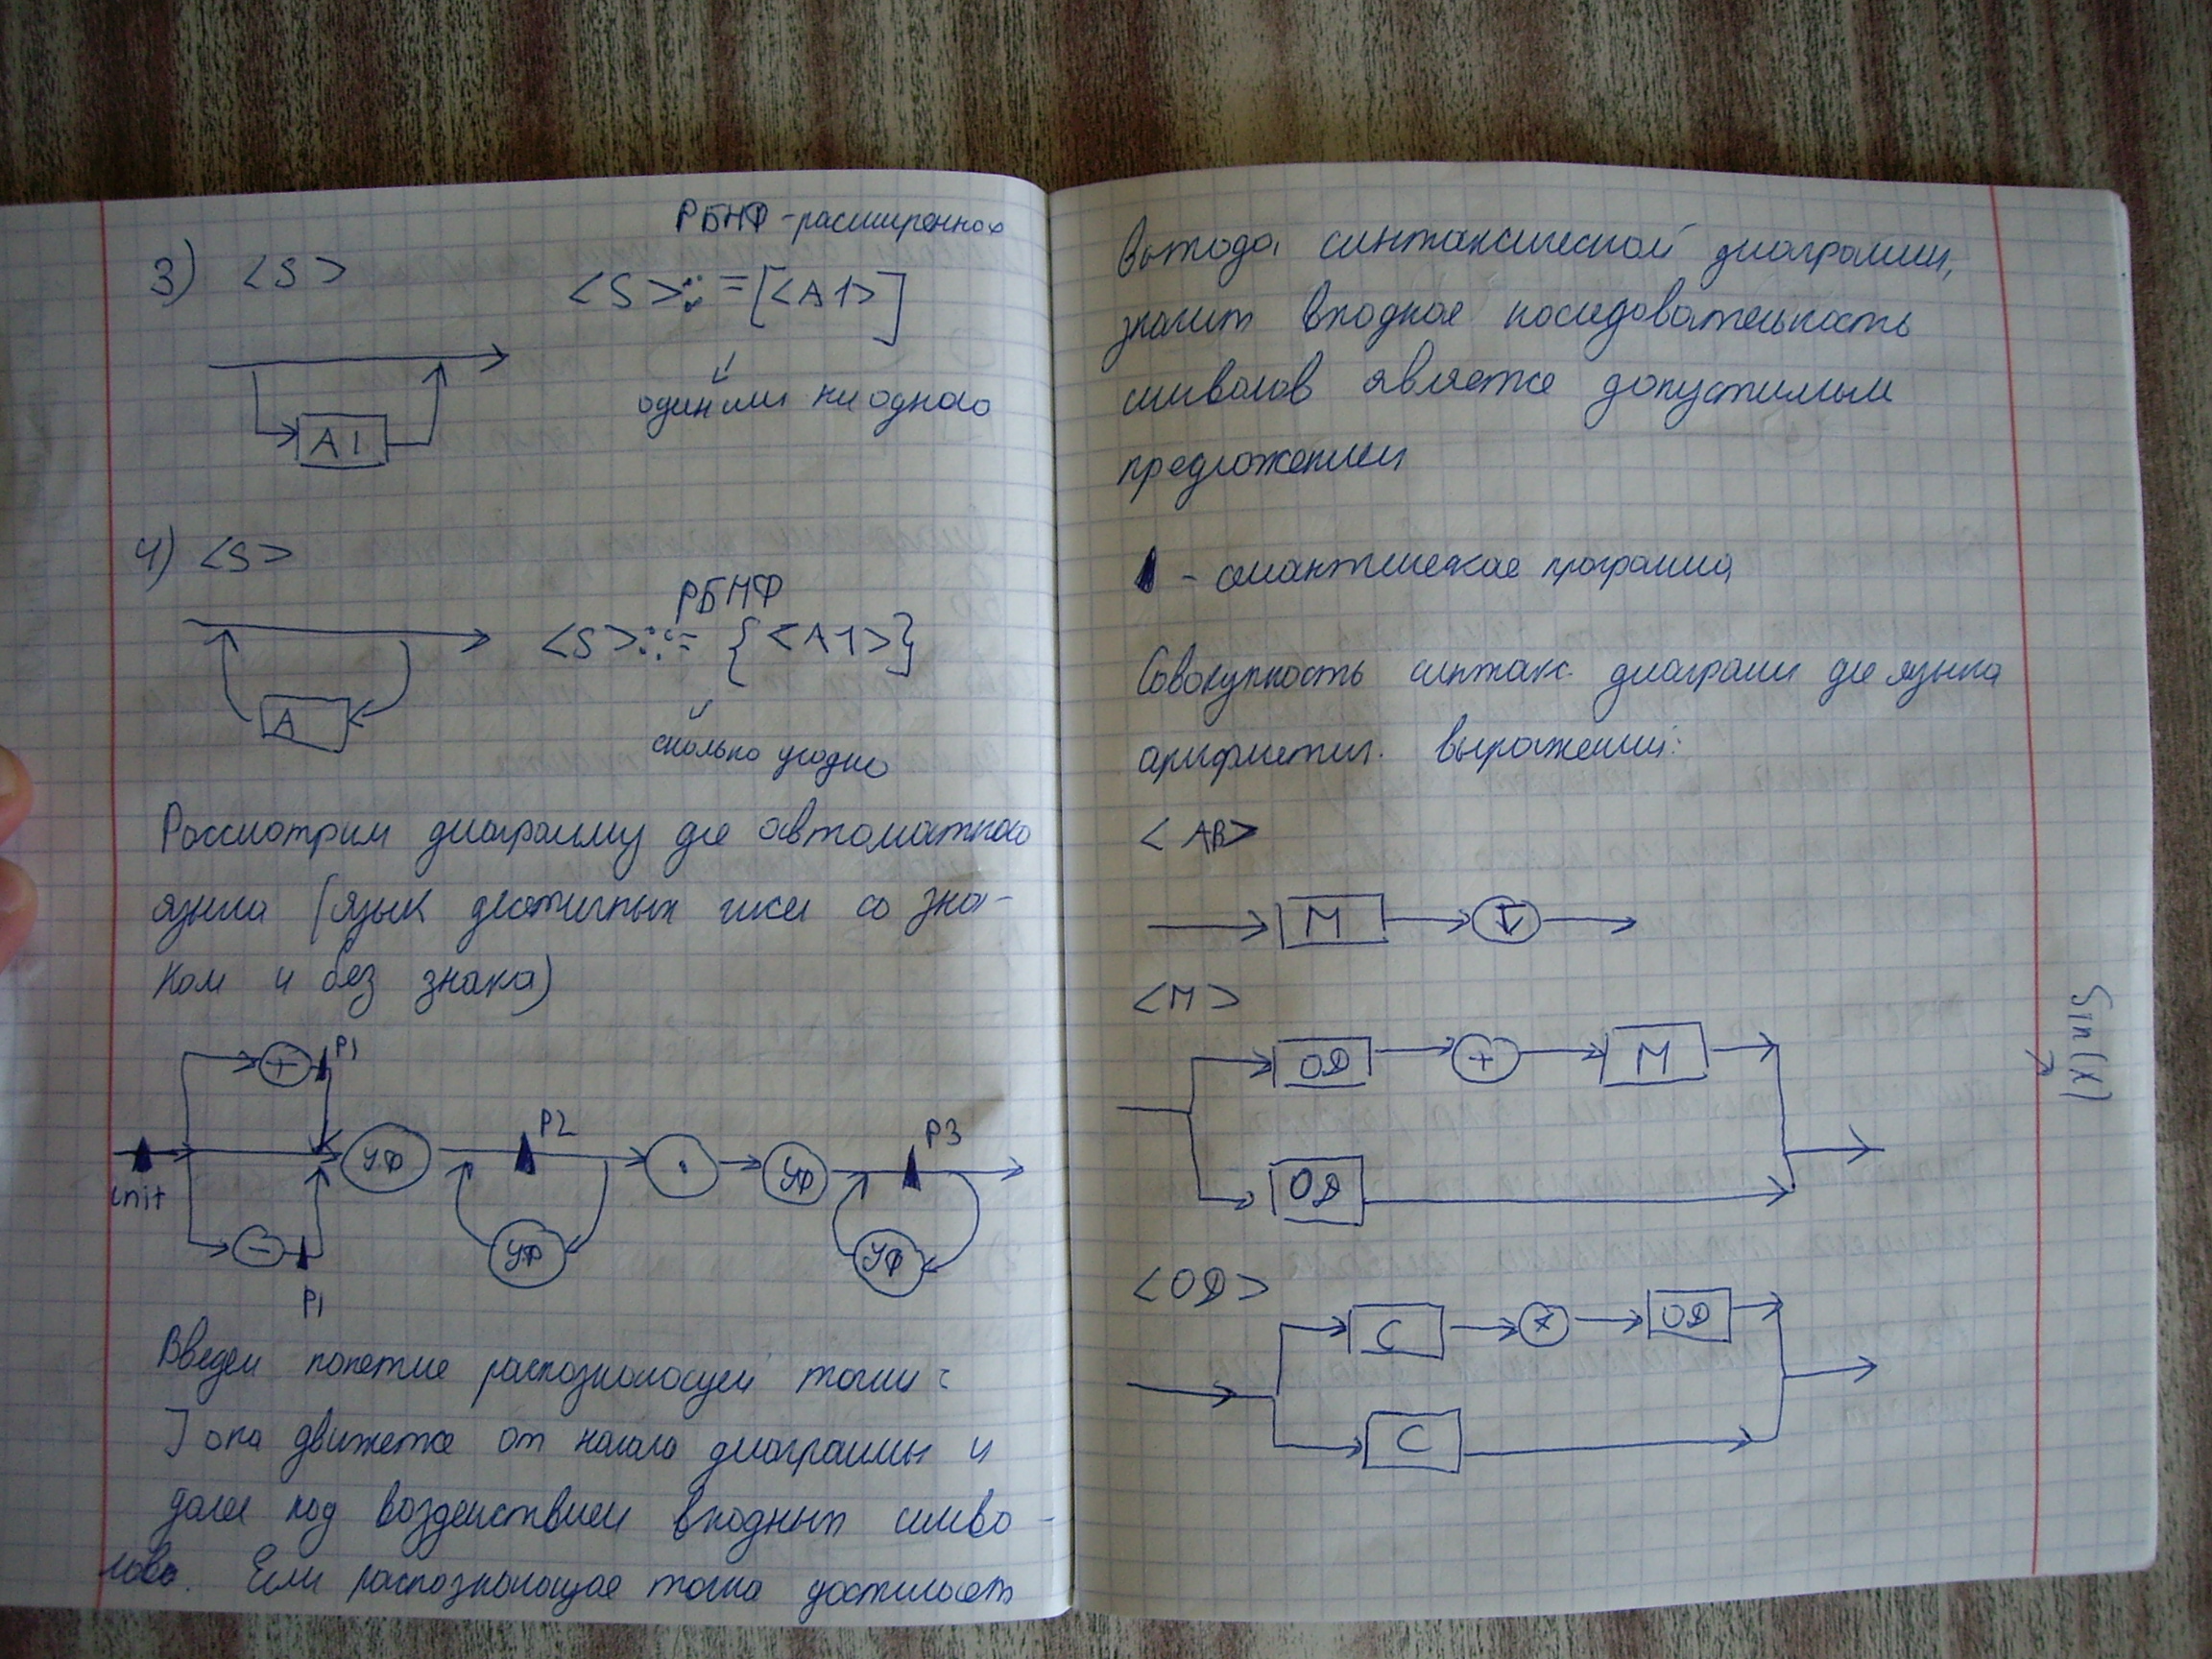 РБНФ - расширенная
3) <S>
<S>::=[<A1>]
один или ни одного
A1
4) <S>
РБНФ
<S>::= {<A1>}
A
сколько угодно
Рассмотрим диаграмму для автоматного
языка (язык десятичных чисел со зна-
ком и без знака)
+ P1
init ЦФ P2 . ЦФ P3
- ЦФ ЦФ
P1
Введем понятие распознающей точки:
Она движется от начала диаграммы и
далее под воздействием входных симво-
лов. Если распознающая точка достигает
выхода синтаксической диаграммы,
значит входная последовательность
символов является допустимым
предложением
- семантическая программа
Совокупность синтакс. диаграмм для языка
арифметич. выражений:
<АВ>
М
<М>
ОД + М
ОД
<ОД>
С × ОД
С
Sin(x)